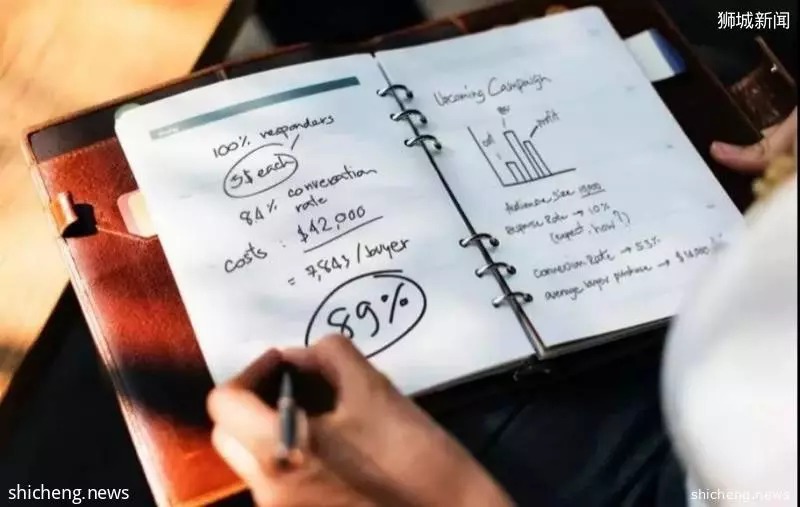 狮城新闻
100% responders
5$ each
8.4% conversation
rate
costs : $42,000
= 7,843 / buyer
89%
Upcoming Campaign
cost
profit
Audience size 10,000
response Rate → 10%
(expect. how?)
Conversion Rate → 5.3%
average buyer purchase →
shicheng.news
shicheng.news